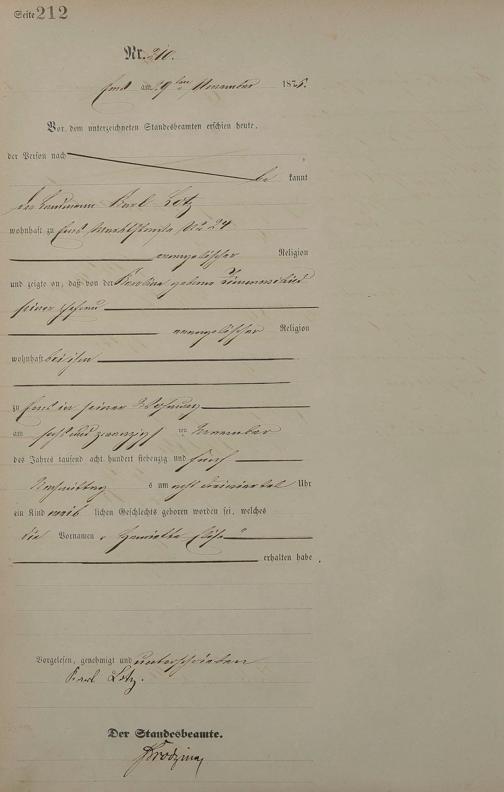 Seite 212
Nr. 210.
Ems am 29ten November 1875.
Vor dem unterzeichneten Standesbeamten erschien heute,
der Person nach be kannt
der Karl Lotz
wohnhaft zu Ems No 24
evangelischer Religion
und zeigte an, daß von der Karolina geborne
seiner Ehefrau
evangelischer Religion
wohnhaft bei ihm
zu Ems in seiner Wohnung
am sechs und zwanzigsten November
des Jahres tausend acht hundert siebenzig und fünf
Nachmittags um acht dreiviertel Uhr
ein Kind weib lichen Geschlechts geboren worden sei, welches
die Vornamen "Henriette Elise"
erhalten habe.
Vorgelesen, genehmigt und unterschrieben
Karl Lotz.
Der Standesbeamte.